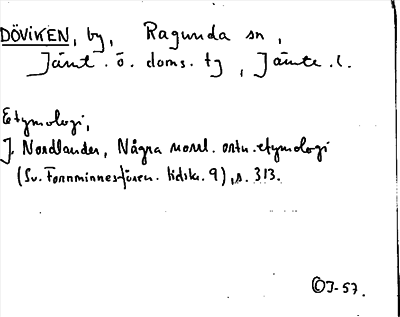 DÖVIKEN, by, Ragunda sn,
Jämt. ö. doms. tg, Jämtl. l.
Etymologi,
J. Nordlander, Några norrl. ortn. etymologi
(Sv. Fornminnesfören. tidskr. 9), s. 313.